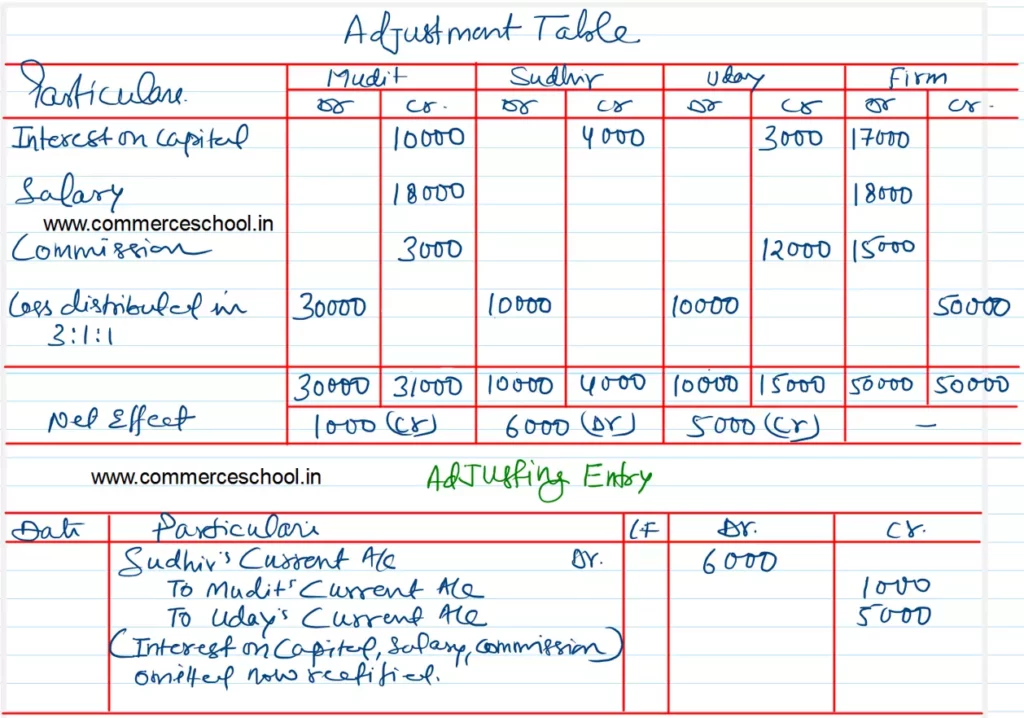 Adjustment Table
Particulars. Mudit Sudhir Uday Firm
Dr Cr. Dr Cr Dr Cr Dr Cr.
Interest on Capital 10000 4000 3000 17000
Salary 18000 18000
www.commerceschool.in
Commission 3000 12000 15000
Loss distributed in 30000 10000 10000 50000
3:1:1
30000 31000 10000 4000 10000 15000 50000 50000
Net Effect 1000 (Cr) 6000 (Dr) 5000 (Cr) —
www.commerceschool.in Adjusting Entry
Date Particulars LF Dr. Cr.
Sudhir's Current A/c Dr. 6000
To Mudit's Current A/c 1000
To Uday's Current A/c 5000
(Interest on Capital, Salary, commission)
omitted now rectified.